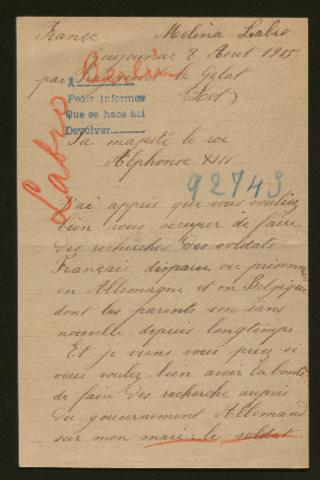 France Melina Labro
8 Aout 1915
Berlin
par le Gelat
(Lot)
A
Pedir informes
Que se hace asi
Devolver
Labro
Sa majesté le roi
Alphonse XIII
92743
J'ai appris que vous vouliez
bien vous occuper de faire
des recherches des soldats
Français disparu ou prisonnie
en Allemagne et en Belgique
dont les parents son sans
nouvelle depuis longtemps
Et je viens vous priez si
vous voulez bien avoir la bonté
de faire des recherche auprès
du gouvernement Allemand
sur mon mari le soldat